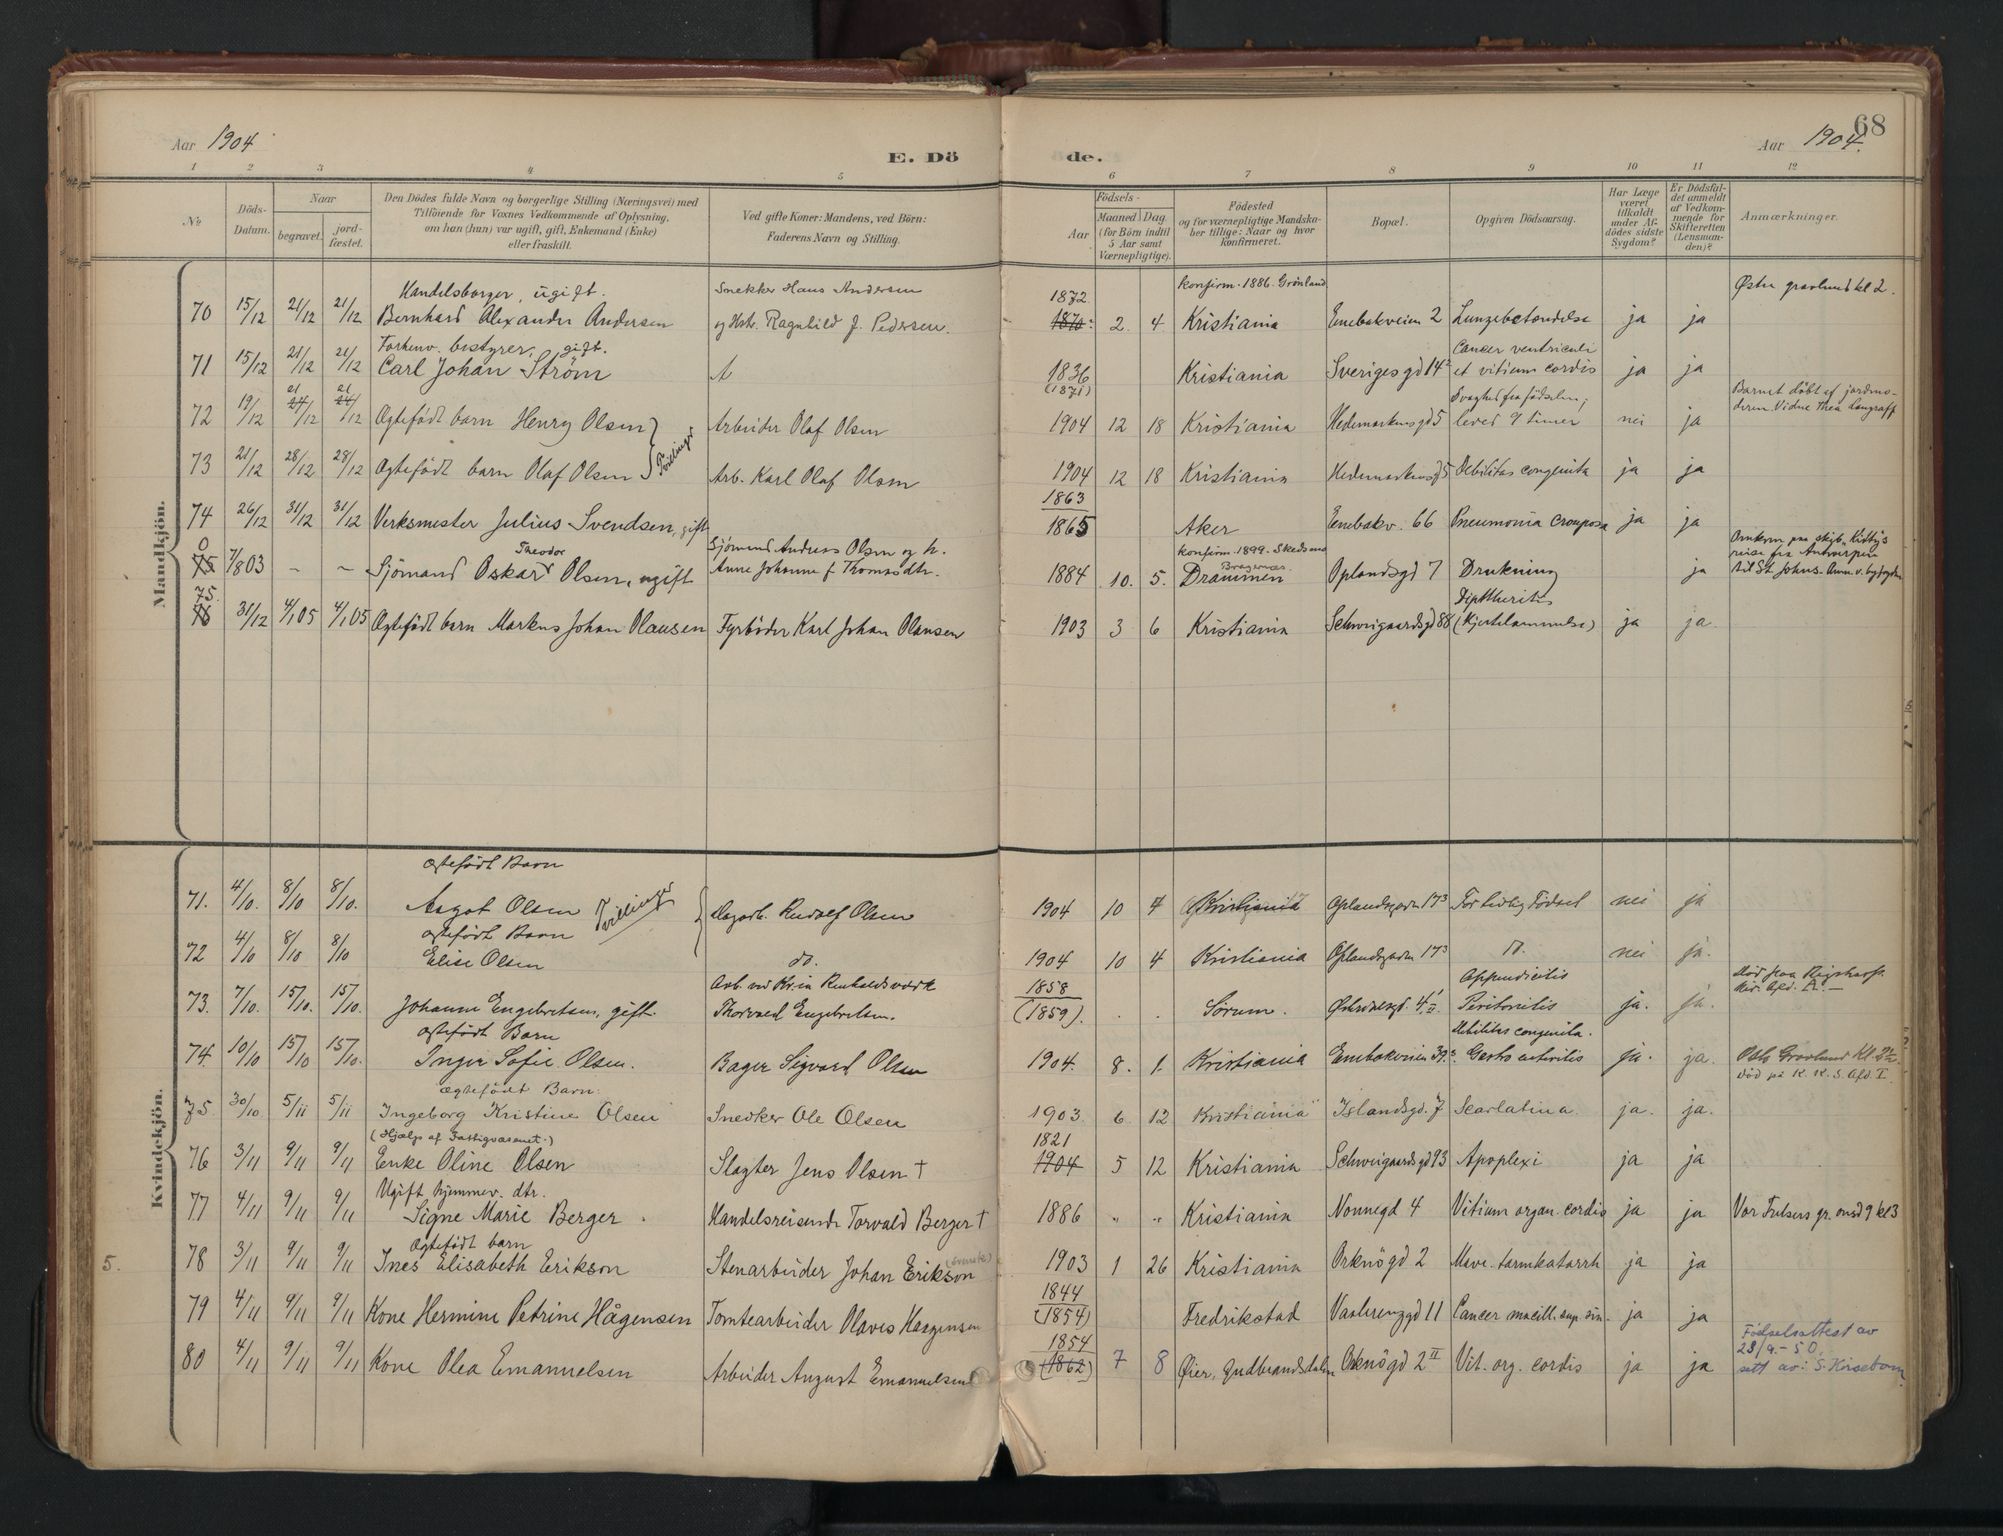 68
Aar 1904
E. Dö
de.
Aar 1904.
1 2 3 4 5 6 7 8 9 10 11 12
No
Döds-Datum.
Naar
begravet.
jord-fæstet.
Den Dödes fulde Navn og borgerlige Stilling (Næringsvei) med
Tilföiende for Voxnes Vedkommende af Oplysning,
om han (hun) var ugift, gift, Enkemand (Enke)
eller fraskilt.
Ved gifte Koner: Mandens, ved Börn:
Faderens Navn og Stilling.
Födsels-
Aar
Maaned Dag
(for Börn indtil
5 Aar samt
Værnepligtige).
Födested
og for værnepligtige Mandska-
ber tillige: Naar og hvor
konfirmeret.
Bopæl.
Opgiven Dödsaarsag.
Har Læge
været
tilkaldt
under Af-
dödes sidste
Sygdom?
Er Dödsfal-
det anmeldt
af Vedkom-
mende for
Skifteretten
(Lensman-
den)?
Anmærkninger.
Mandkjön.
Handelsborger, ugift. Snekker Hans Andersen 1872 konfirm. 1886. Grönland Östre gravlund kl 2.
70 15/12 21/12 21/12 Bernhard Alexander Andersen og Hst. Ragnhild J. Pedersen. 1870: 2. 4. Kristiania Enebakveien 2 Lungebetændelse ja ja
Forhenv. bestyrer, gift. Cancer ventriculi
71 15/12 21/12 21/12 Carl Johan Ström 1836 Kristiania Sverigesgd 14² et vitium cordis ja ja
(1871) Svaghed fra födselen; Barnet döbt af jordmo-
72 19/12 21/12 21/12 Ogtefödt barn Henry Olsen Tvillinger Arbeider Olaf Olsen 1904 12 18 Kristiania Hedemarkensgd 5 levet 9 timer nei ja deren. Vidne Thea Langraff
73 21/12 28/12 28/12 Ogtefödt barn Olaf Olsen Arb. Karl Olaf Olsen 1904 12 18 Kristiania Hedemarkensgd 5 Debilitas congenita ja ja
1863
74 26/12 31/12 31/12 Verksmester Julius Svendsen, gift 1865 Aker Enebakv. 66 Pneumonia crouposa ja ja
0 Theodor Sjömand Andreas Olsen og h. konfirm. 1899. Skedsmo Bragernæs. Omkom paa skib „Kitty"s
75 7/8 03 - - Sjömand Oskar Olsen, ugift Anne Johanne f Thomasdtr. 1884 10. 5. Drammen Oplandsgd 7 Drukning ja reise fra Antwerpen
til St. Johns
75. Diphtheritis
76 31/12 4/1 05 4/1 05 Ogtefödt barn Markus Johan Olausen Fyrböder Karl Johan Olausen 1903 3 6 Kristiania Schweigaardsgd 88 (Hjertelammelse) ja ja.
Kvindekjön.
Ogtefödt Barn
71. 4/10. 8/10 8/10. Aagot Olsen Tvillinger Dagarb. Rudolf Olsen 1904 10 4 Kristiania Oplandsgaden 17³ For tidlig Födsel nei ja
Ogtefödt Barn
72 4/10 8/10 8/10 Elise Olsen do. 1904 10 4 Kristiania Oplandsgaden 17³ D. nei ja.
Arb. ved Kr.ia Renholdsværk 1858 Appendicitis Död paa Rigshosp.
73. 7/10. 15/10. 15/10. Johanne Engebretsen, gift. Thorvald Engebretsen. (1859). Sörum. Peritonitis ja. ja. Kir. Afd. A.
Ogtefödt Barn Debilitas congenita.
74. 10/10 15/10 15/10. Inger Sofie Olsen. Bager Sigvard Olsen 1904. 8. 1. Kristiania Enebakveien 39. Gastro enteritis ja. ja. Oslo Gravlund Kl.
Död på K. K. S. Afd. I.
Ogtefödt Barn.
75. 30/10. 5/11 5/11 Ingeborg Kristine Olsen Snedker Ole Olsen 1903. 6 12 Kristiania Islandsgd. 7 Scarlatina. ja. ja.
(Hjælp af Fattigvæsenet.) 1821
76 3/11 9/11 9/11 Enke Oline Olsen Slagter Jens Olsen † 1904 5 12 Kristiania Schweigaardsgd 93 Apoplexi ja ja
Ugift hjemmev. dtr.
77 4/11 9/11 9/11 Signe Marie Berger Handelsreisende Torvald Berger † 1886 " " Kristiania Nonnegd 4 Vitium organ. cordis ja ja Vor Frelsers gr. onsd 9 kl 3
Ogtefödt barn (svensk)
5. 78 3/11 9/11 9/11 Ines Elisabeth Erikson Stenarbeider Johan Erikson 1903 1 26 Kristiania Orknögd 2 Mave-tarmkatarrh ja ja
1844
79 4/11 9/11 9/11 Kone Hermine Petrine Hågensen Tomtearbeider Olaves Haagensen (1854) Fredrikstad Vaalerenggd 11 Cancer maxill. sup. sin. ja ja
1854 Födselsattest av
80 4/11 9/11 9/11 Kone Olea Emanuelsen Arbeider August Emanuelsen (1862) 7 8 Øier, Gudbrandsdalen Orknögd 2 II Vit. org. cordis ja ja 23/9.-50.
sett av: S. Kirsebom